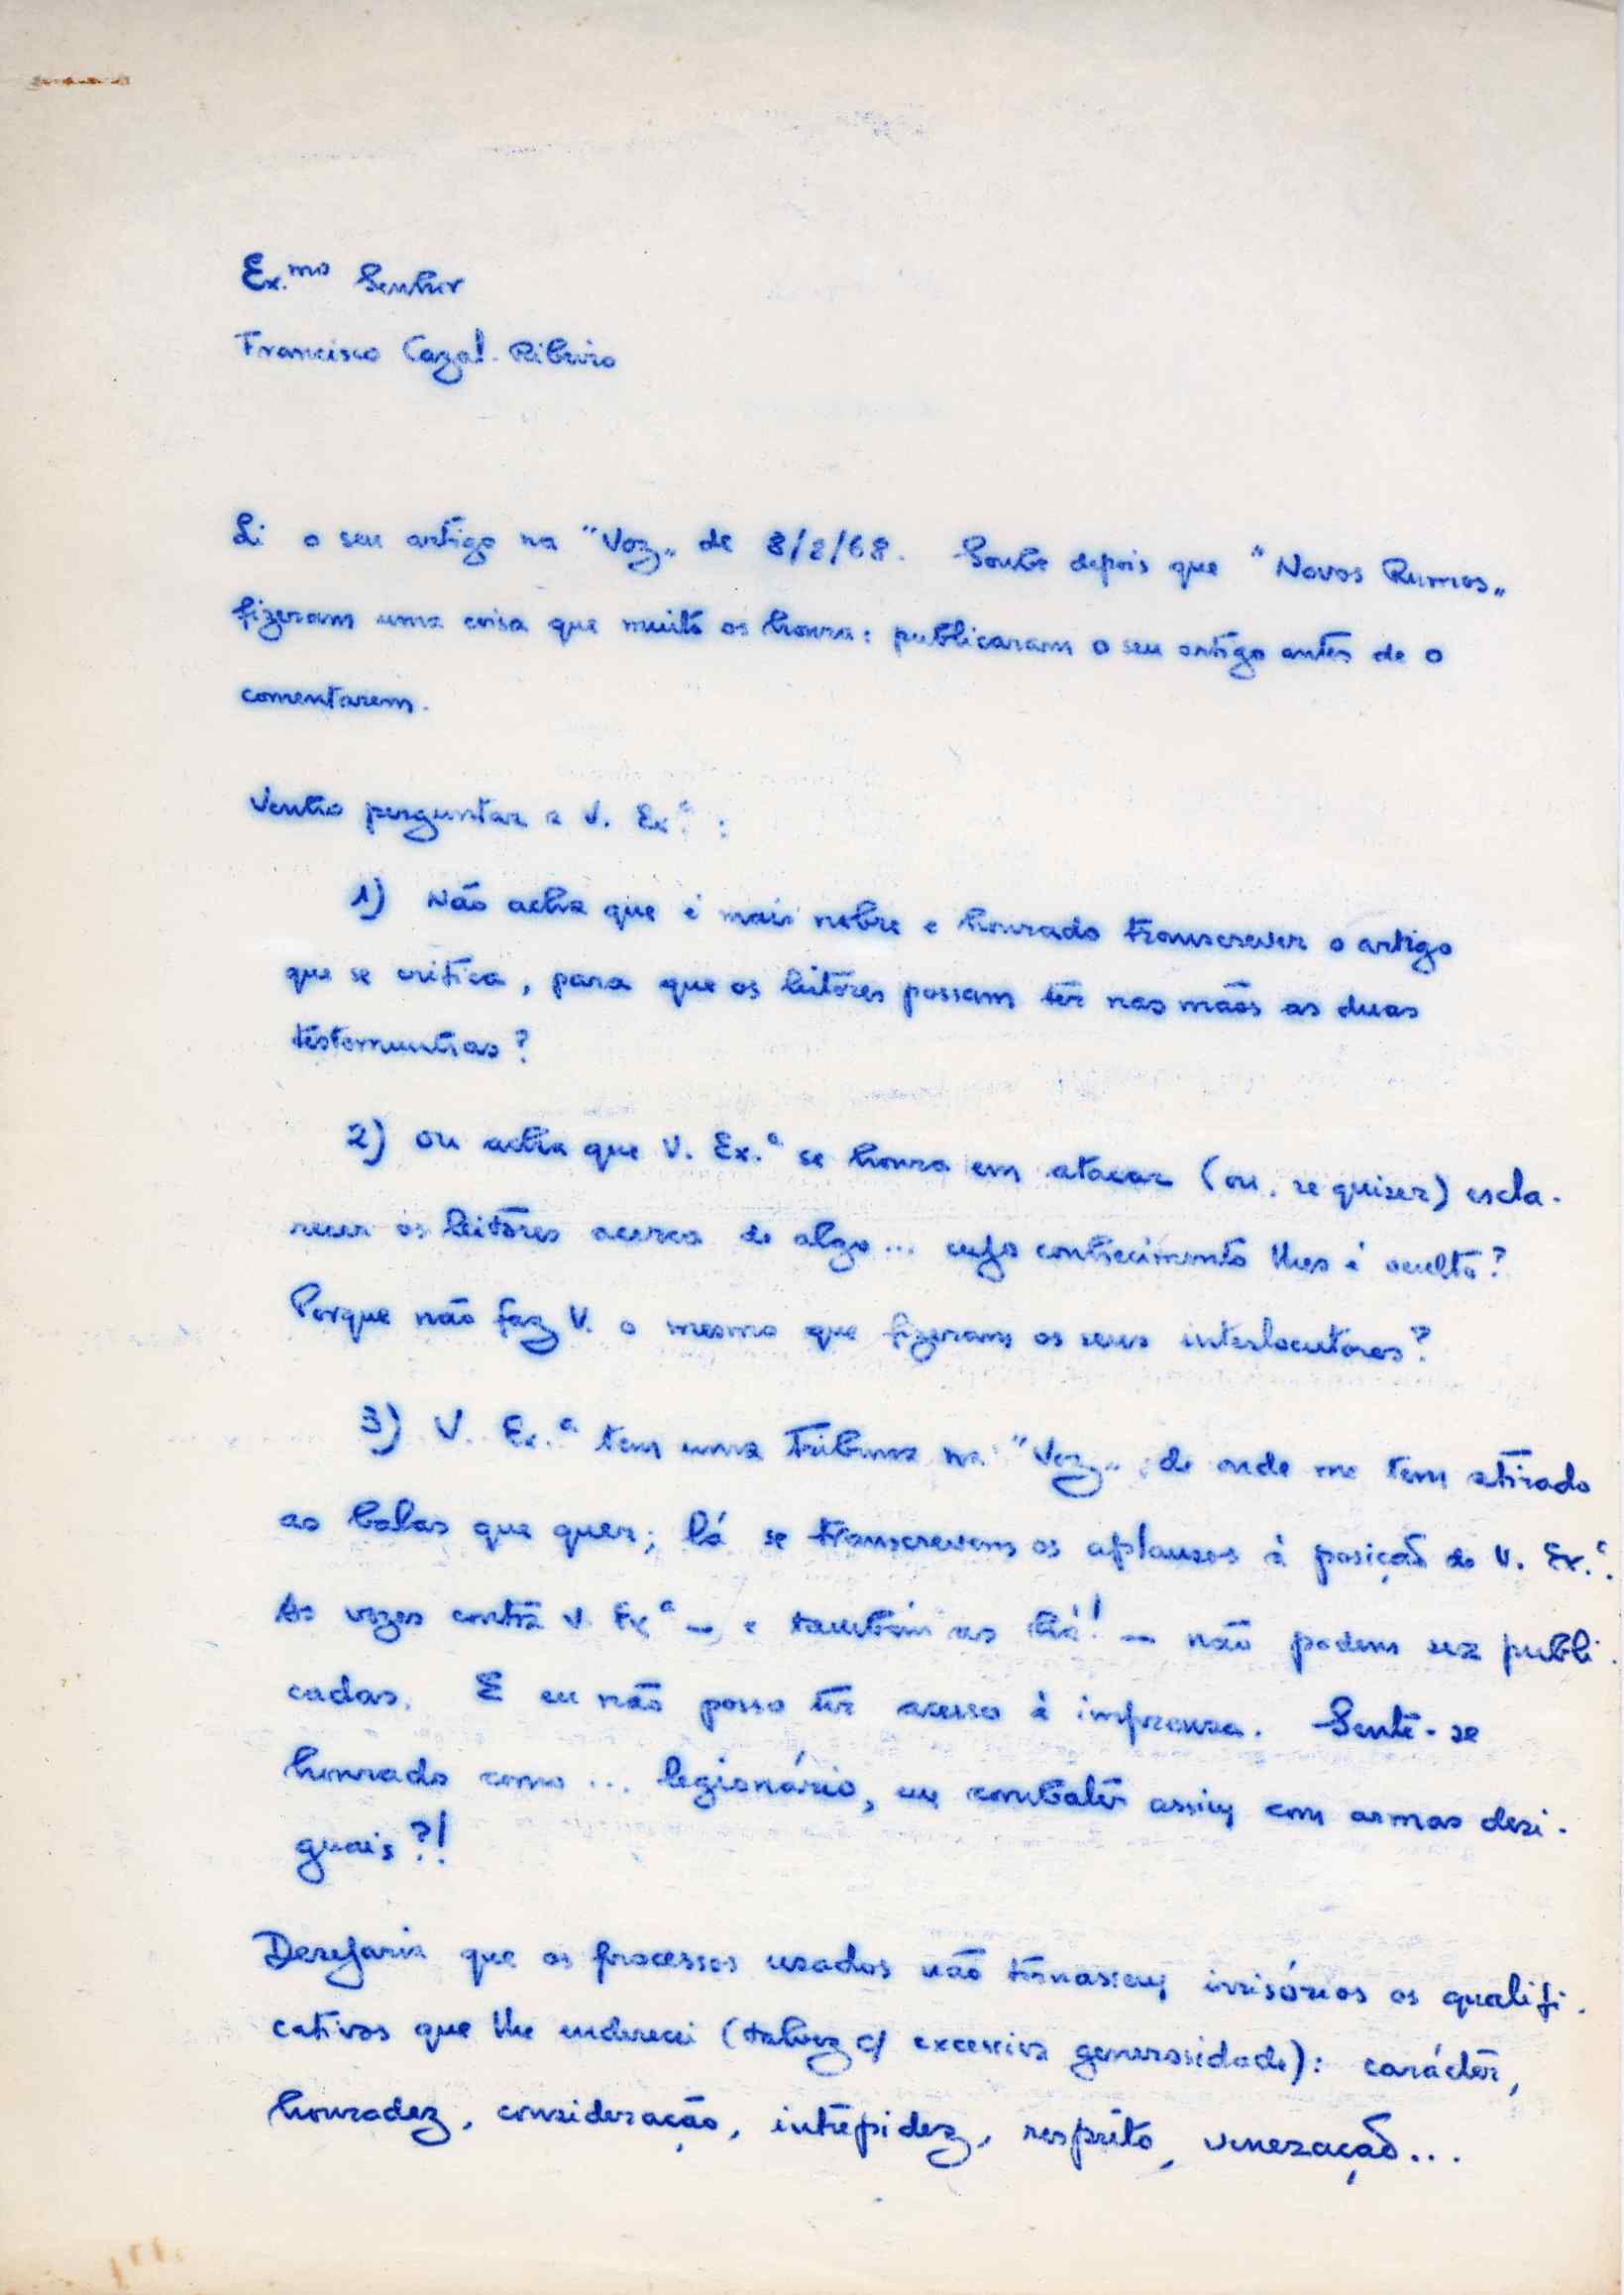 Ex.mo Senhor
Francisco Cazal-Ribeiro
Li o seu artigo na "Voz" de 8/2/68. Soube depois que "Novos Rumos"
fizeram uma coisa que muito os honra: publicaram o seu artigo antes de o
comentarem.
Venho perguntar a V. Ex.ª :
1) Não acha que é mais nobre e honrado transcrever o artigo
que se critica, para que os leitores possam ter nas mãos as duas
testemunhas?
2) Ou acha que V. Ex.ª se honra em atacar (ou, se quiser) escla-
recer os leitores acerca de algo... cujo conhecimento lhes é oculto?
Porque não faz V. o mesmo que fizeram os seus interlocutores?
3) V. Ex.ª tem uma Tribuna na "Voz", de onde me tem atirado
as balas que quer; lá se transcrevem os aplausos à posição de V. Ex.ª.
As vozes contra V. Exª — e também as há! — não podem ser publi-
cadas. E eu não posso ter acesso à imprensa. Sente-se
honrado como ... legionário, em combater assim com armas desi-
guais?!
Desejaria que os processos usados não tornassem irrisórios os qualifi-
cativos que lhe enderecei (talvez c/ excessiva generosidade): carácter,
honradez, consideração, intrepidez, respeito, veneração...